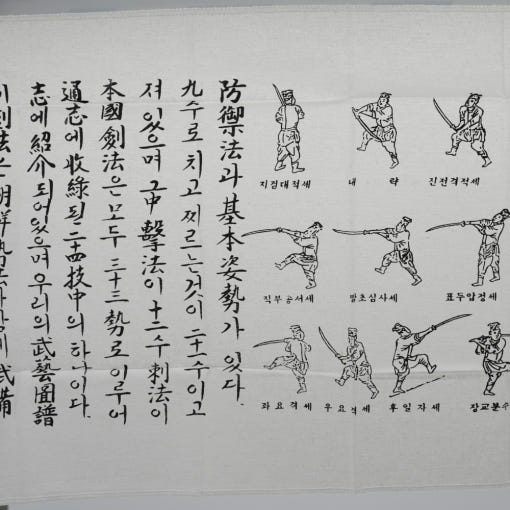 志에 紹介되어있으며 우리의 武藝圖譜
通志에 收錄된 二十四技中의 하나이다.
本國劍法은 모두 三十三勢로 이루어
져 있으며 그中 擊法이 十二수 刺法이
九수로 치고 찌르는것이 二十一수이고
防禦法과 基本姿勢가 있다.
지검대적세
내 략
진전격적세
직부공서세
발초심사세
표두압정세
좌요격세
우요격세
후일자세
장교분수